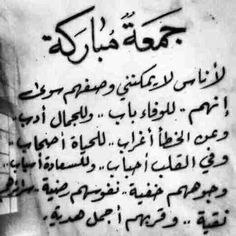 جمعة مباركة
لأناس لا يمكنني وصفهم سوى
إنهم .. للوفاء باب .. وللجمال أدب ..
وعن الخطأ أغراب .. للحياة أصحاب ..
وفي القلب أحباب .. وللسعادة أسباب ..
وجوههم خفية .. نفوسهم رضية ..
نقية .. وقربهم أجمل هدية ..